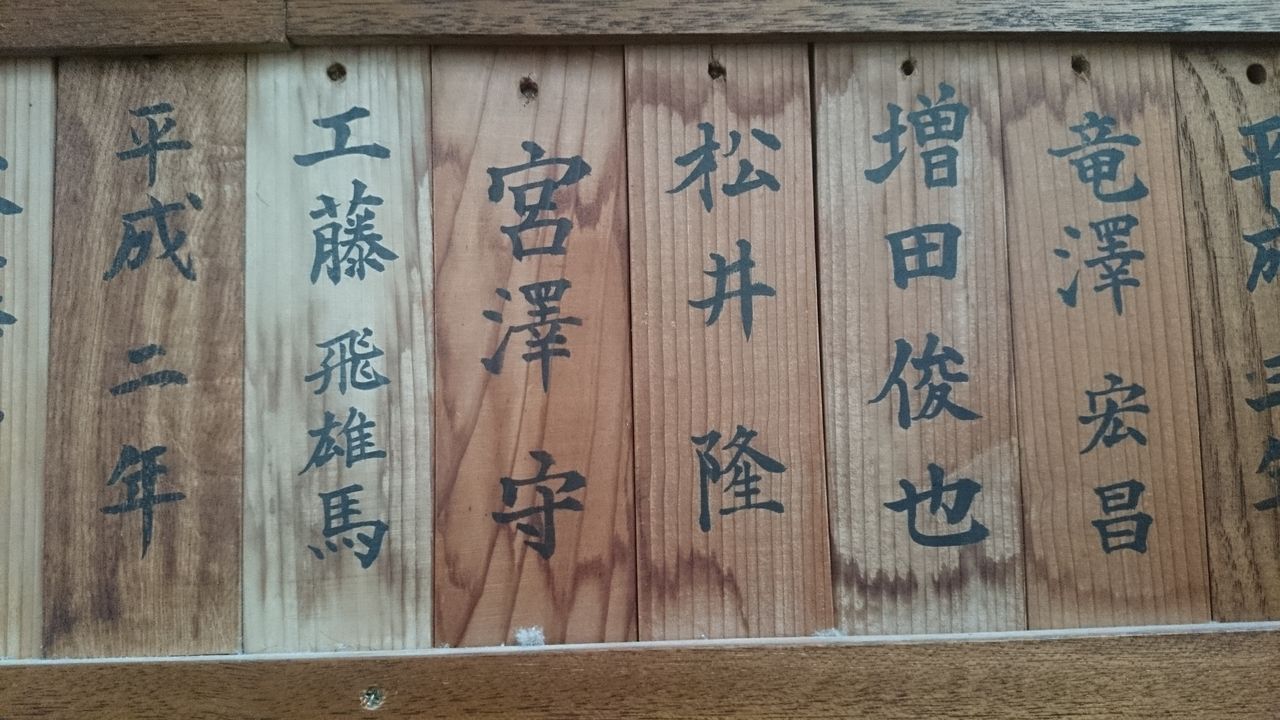 平成三年
竜澤宏昌
増田俊也
松井隆
宮澤守
工藤飛雄馬
平成二年